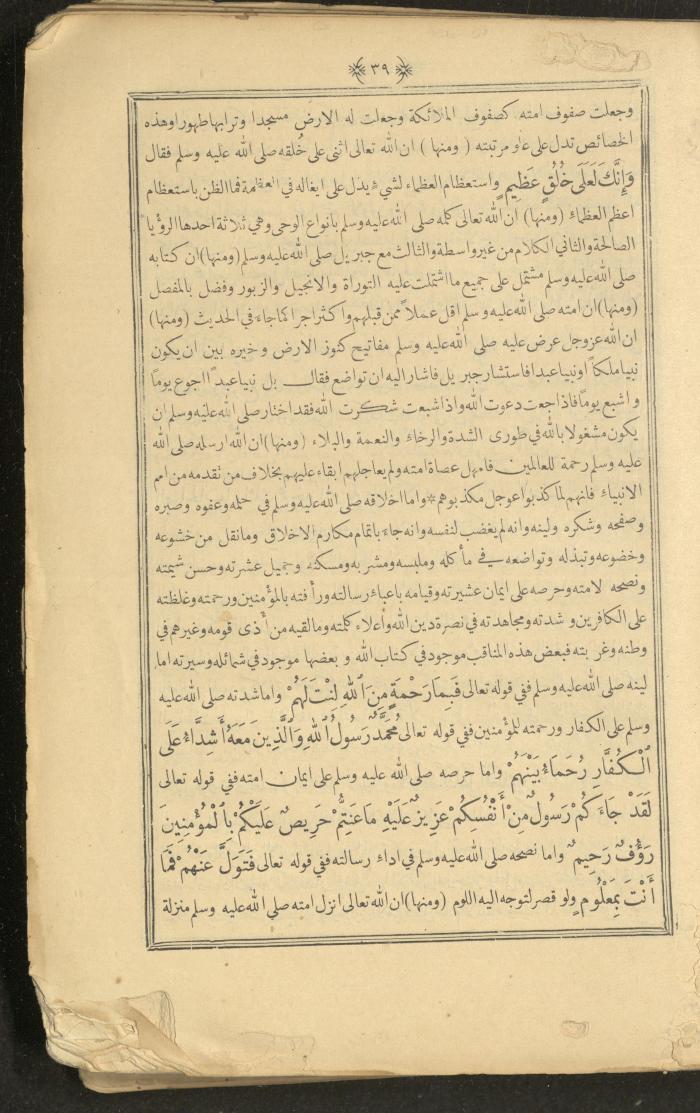 ﴿٣٩﴾
وجعلت صفوف امته كصفوف الملائكة وجعلت له الارض مسجدا وترابها طهورا وهذه
الخصائص تدل على علو مرتبته (ومنها) ان الله تعالى اثنى على خُلقه صلى الله عليه وسلم فقال
وَإِنَّكَ لَعَلَى خُلُقٍ عَظِيمٍ واستعظام العظماء لشيء يدل على ايغاله في العظمة فما الظن باستعظام
اعظم العظماء (ومنها) ان الله تعالى كلمه صلى الله عليه وسلم بانواع الوحي وهي ثلاثة احدها الرؤيا
الصالحة والثاني الكلام من غير واسطة والثالث مع جبريل صلى الله عليه وسلم (ومنها) ان كتابه
صلى الله عليه وسلم مشتمل على جميع ما اشتملت عليه التوراة والانجيل والزبور وفضل بالمفصل
(ومنها) ان امته صلى الله عليه وسلم اقل عملاً ممن قبلهم واكثر اجرا كما جاء في الحديث (ومنها)
ان الله عز وجل عرض عليه صلى الله عليه وسلم مفاتيح كنوز الارض وخيره بين ان يكون
نبيا ملكاً او نبيا عبدا فاستشار جبريل فاشار اليه ان تواضع فقال بل نبيا عبداً اجوع يوماً
واشبع يوماً فاذا جعت دعوت الله واذا شبعت شكرت الله فقد اختار صلى الله عليه وسلم ان
يكون مشغولا بالله في طورى الشدة والرخاء والنعمة والبلاء (ومنها) ان الله ارسله صلى الله
عليه وسلم رحمة للعالمين فامهل عصاة امته ولم يعاجلهم ابقاء عليهم بخلاف من تقدمه من امم
الانبياء فانهم لما كذبوا عوجل مكذبوهم * واما اخلاقه صلى الله عليه وسلم في حلمه وعفوه وصبره
وصفحه وشكره ولينه وانه لم يغضب لنفسه وانه جاء باتمام مكارم الاخلاق وما نقل من خشوعه
وخضوعه وتبذله وتواضعه في مأكله وملبسه ومشربه ومسكنه وجميل عشرته وحسن شيمته
ونصحه لامته وحرصه على ايمان عشيرته وقيامه باعباء رسالته ورأفته بالمؤمنين ورحمته وغلظته
على الكافرين وشدته ومجاهدته في نصرة دين الله واعلاء كلمته وما لقيه من أذى قومه وغيرهم في
وطنه وغربته فبعض هذه المناقب موجود في كتاب الله وبعضها موجود في شمائله وسيرته اما
لينه صلى الله عليه وسلم ففي قوله تعالى فَبِمَا رَحْمَةٍ مِنَ ٱللهِ لِنْتَ لَهُمْ واما شدته صلى الله عليه
وسلم على الكفار ورحمته للمؤمنين ففي قوله تعالى مُحَمَّدٌ رَسُولُ ٱللهِ وَٱلَّذِينَ مَعَهُ أَشِدَّاءُ عَلَى
ٱلْكُفَّارِ رُحَمَاءُ بَيْنَهُمْ واما حرصه صلى الله عليه وسلم على ايمان امته ففي قوله تعالى
لَقَدْ جَاءَكُمْ رَسُولٌ مِنْ أَنْفُسِكُمْ عَزِيزٌ عَلَيْهِ مَا عَنِتُّمْ حَرِيصٌ عَلَيْكُمْ بِٱلْمُؤْمِنِينَ
رَؤُفٌ رَحِيمٌ واما نصحه صلى الله عليه وسلم في اداء رسالته ففي قوله تعالى فَتَوَلَّ عَنْهُمْ فَمَا
أَنْتَ بِمَلُومٍ ولو قصر لتوجه اليه اللوم (ومنها) ان الله تعالى انزل امته صلى الله عليه وسلم منزلة